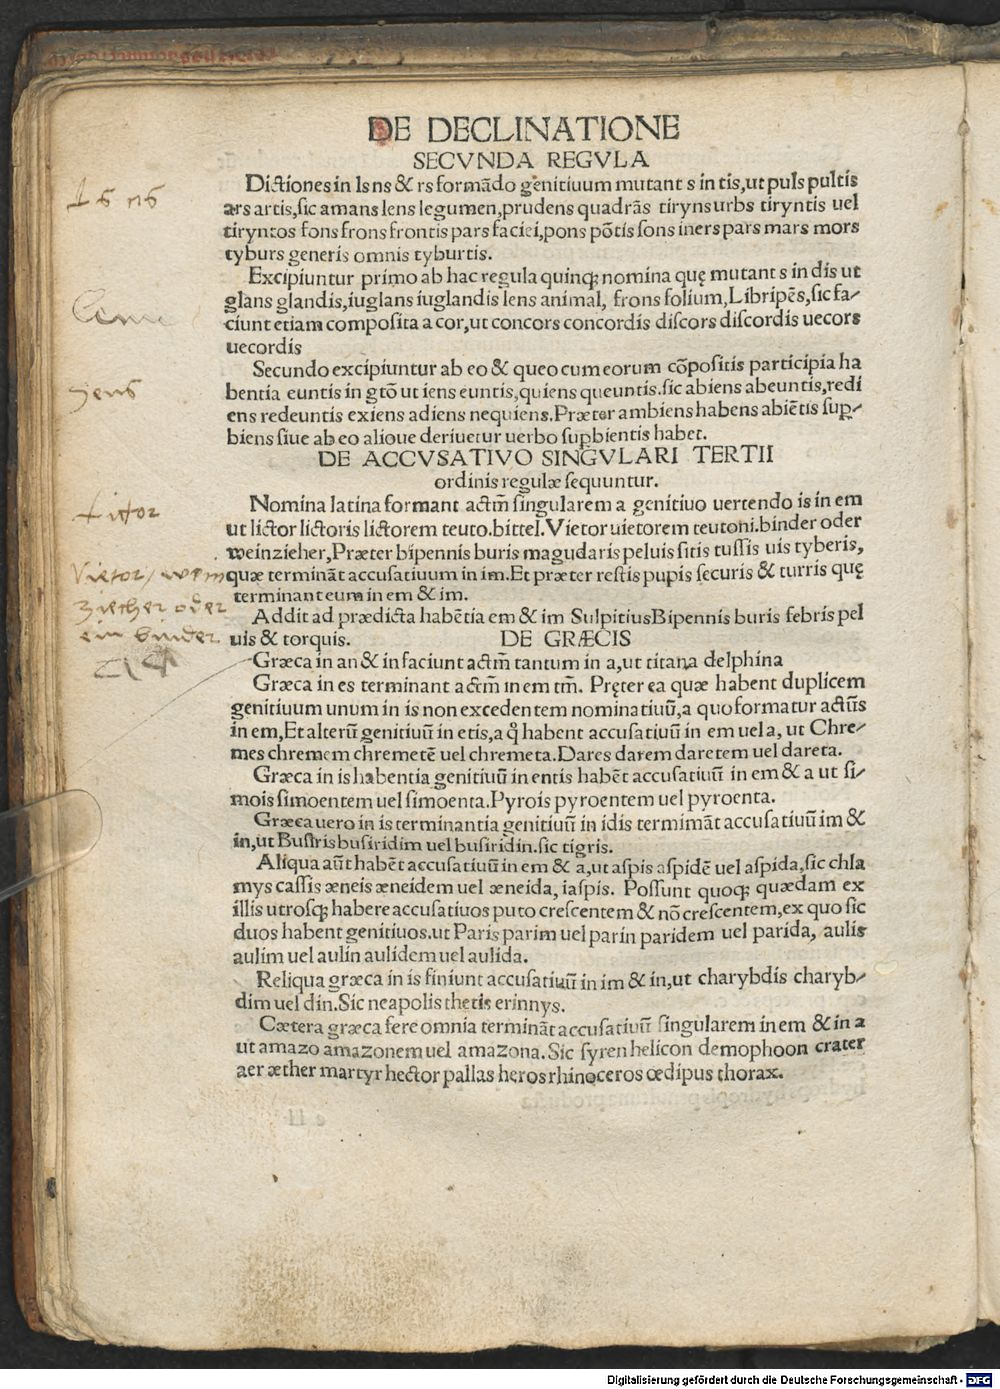 DE DECLINATIONE
SECVNDA REGVLA
Dictiones in ls ns & rs formãdo genitiuum mutant s in tis,ut puls pultis
ars artis,sic amans lens legumen,prudens quadrãs tiryns urbs tiryntis uel
tiryntos fons frons frontis pars faciei,pons põtis sons iners pars mars mors
tyburs generis omnis tyburtis.
Excipiuntur primo ab hac regula quinq; nomina quę mutant s in dis ut
glans glandis,iuglans iuglandis lens animal, frons folium,Libripẽs,sic fa-
ciunt etiam composita a cor,ut concors concordis discors discordis uecors
uecordis
Secundo excipiuntur ab eo & queo cum eorum cõpositis participia ha
bentia euntis in gtõ ut iens euntis,quiens queuntis.sic abiens abeuntis,redi
ens redeuntis exiens adiens nequiens.Præter ambiens habens abiẽtis sup-
biens siue ab eo alioue deriuetur uerbo supbientis habet.
DE ACCVSATIVO SINGVLARI TERTII
ordinis regulæ sequuntur.
Nomina latina formant actm̃ singularem a genitiuo uertendo is in em
ut lictor lictoris lictorem teuto.bittel.Vietor uietorem teutoni.binder oder
weinzieher,Præter bipennis buris magudaris peluis sitis tussis uis tyberis,
quæ terminãt accusatiuum in im.Et præter restis pupis securis & turris quę
terminant eum in em & im.
Addit ad prædicta habẽtia em & im Sulpitius Bipennis buris febris pel
uis & torquis. DE GRÆCIS
Græca in an & in faciunt actm̃ tantum in a,ut titana delphina
Græca in es terminant actm̃ in em tm̃. Pręter ea quæ habent duplicem
genitiuum unum in is non excedentem nominatiuũ,a quo formatur actũs
in em,Et alterũ genitiuũ in etis,a q̃ habent accusatiuũ in em uel a, ut Chre-
mes chremem chremetẽ uel chremeta.Dares darem daretem uel dareta.
Græca in is habentia genitiuũ in entis habẽt accusatiuũ in em & a ut si-
mois simoentem uel simoenta.Pyrois pyroentem uel pyroenta.
Græca uero in is terminantia genitiuũ in idis termimãt accusatiuũ im &
in,ut Busiris busiridim uel busiridin.sic tigris.
Aliqua aũt habẽt accusatiuũ in em & a,ut aspis aspidẽ uel aspida,sic chla
mys cassis æneis æneidem uel æneida, iaspis. Possunt quoq; quædam ex
illis utrosq; habere accusatiuos puto crescentem & nõ crescentem,ex quo sic
duos habent genitiuos.ut Paris parim uel parin paridem uel parida, aulis
aulim uel aulin aulidem uel aulida.
Reliqua græca in is finiunt accusatiuũ in im & in,ut charybdis charyb-
dim uel din.Sic neapolis thetis erinnys.
Cætera græca fere omnia terminãt accusatiuũ singularem in em & in a
ut amazo amazonem uel amazona.Sic syren helicon demophoon crater
aer æther martyr hector pallas heros rhinoceros œdipus thorax.
ls ns
Iens
Lictor
Vietor/ wein
ziecher oder
ein binder
Digitalisierung gefördert durch die Deutsche Forschungsgemeinschaft - DFG